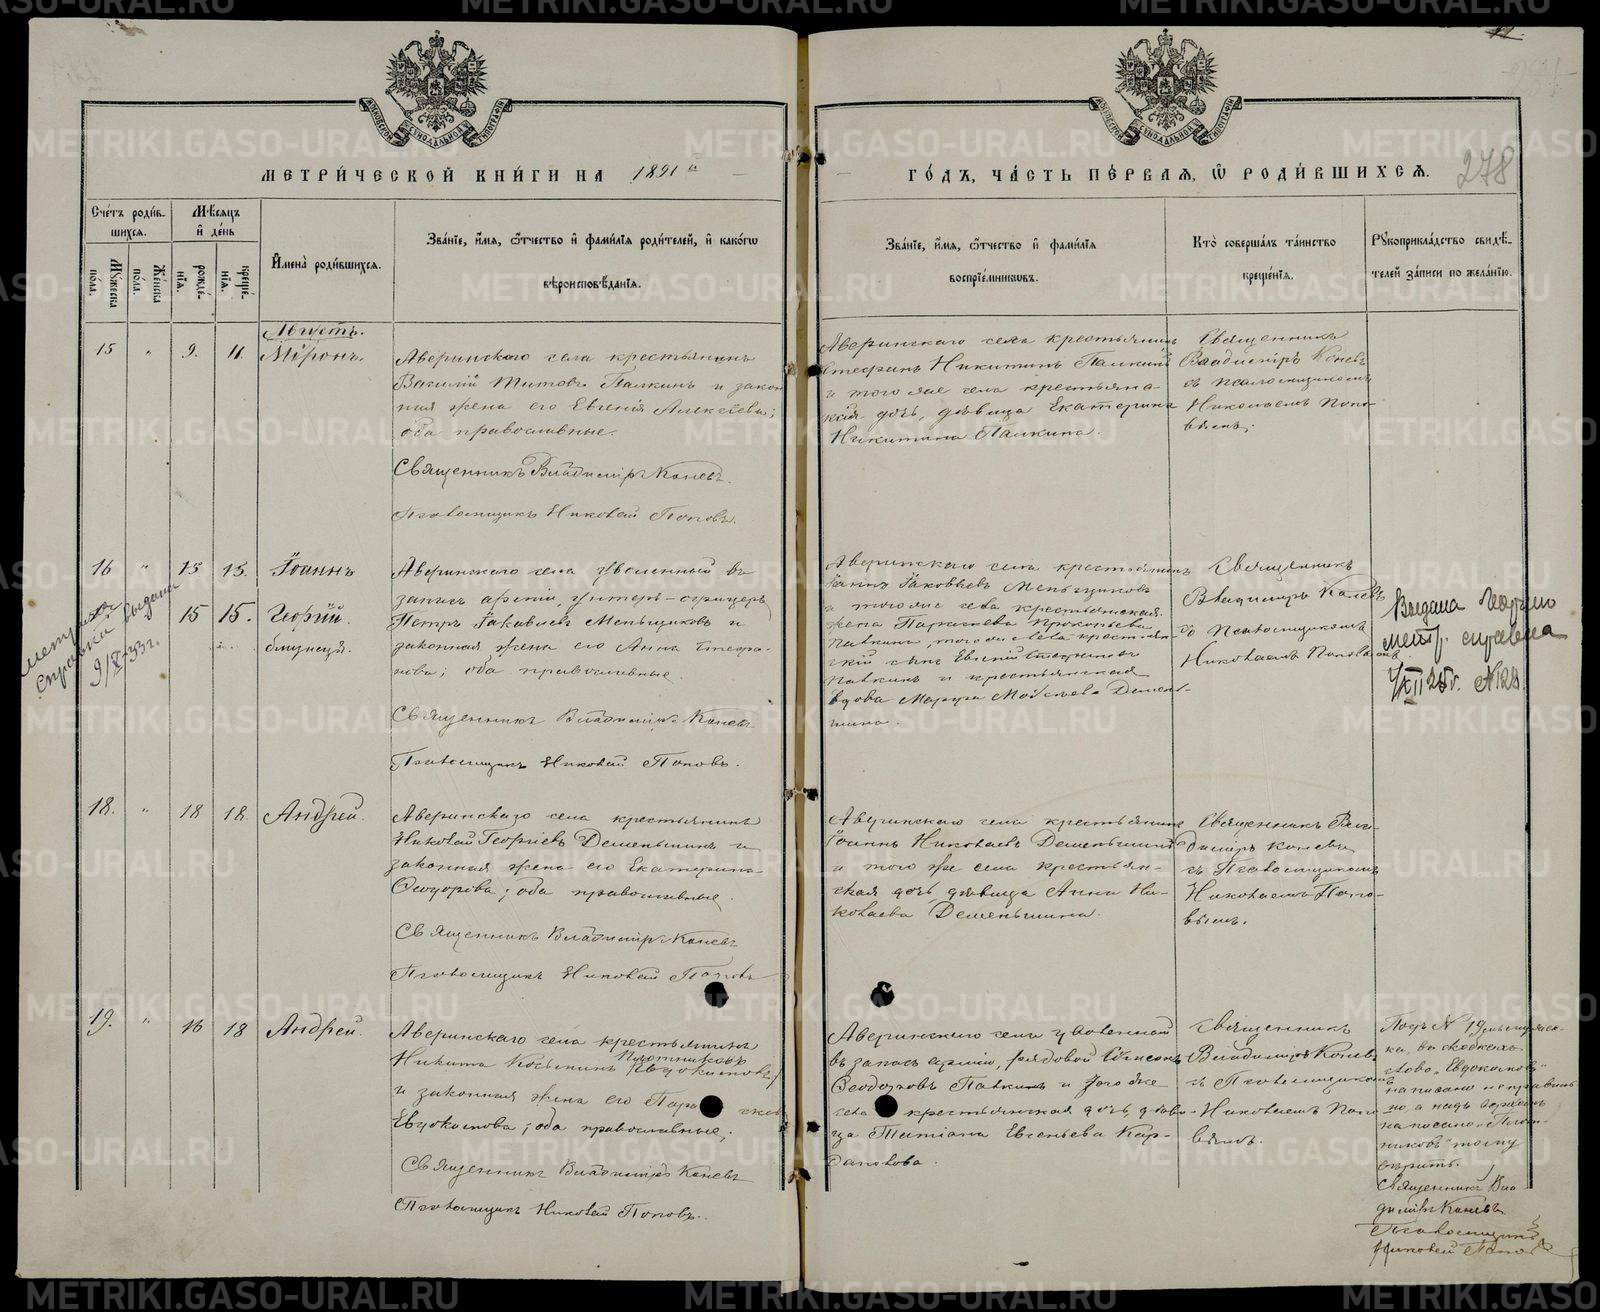 МЕТРИ́ЧЕСКОЙ КНИ́ГИ НА 1891й
ГО́ДЪ, ЧА́СТЬ ПЕ́РВАЯ, Ѡ РОДИ́ВШИХСЯ.
278
Сче́тъ роди́в-
шихся.
Мѣсяцъ
и день
Мужеска
пола.
Женска
пола.
рожде-
нія.
креще-
нія.
Имена̀ роди́вшихся.
Зва́ніе, и́мя, ѻ́тчество и фами́лія роди́телей, и како́гѡ
вѣроисповѣ́данія.
Зва́ніе, и́мя, ѻ́тчество и фами́лія
воспріе́мниковъ.
Кто̀ соверша́лъ та́инство
креще́нія.
Рукоприкла́дство свидѣ́-
телей за́писи по жела́нію.
Августъ.
15 " 9. 11. Міронъ.
Аверинскаго села крестьянинъ
Василій Титовъ Палкинъ и закон
ная жена его Евгенія Алексѣева;
оба православные.
Священникъ Владиміръ Каневъ.
Псаломщикъ Николай Поповъ.
Аверинскаго села крестьянинъ
Стефанъ Никитинъ Палкинъ
и того же села крестьянс-
кая дочь, дѣвица Екатерина
Никитина Палкина.
Священникъ
Владиміръ Каневъ
съ псаломщикомъ
Николаемъ Попо-
вымъ.
16 " 15 15. Іоаннъ
15 15. Георгій.
близнецы.
Метрическ
справка выдана
9/X-33 г.
Аверинскаго села уволенный въ
запасъ арміи, унтеръ-офицеръ
Петръ Іаковлевъ Меньщиковъ и
законная жена его Анна Стефа-
нова; оба православные.
Священникъ Владиміръ Каневъ
Псаломщикъ Николай Поповъ.
Аверинскаго села крестьянинъ
Іаннъ Іаковлевъ Меньщиковъ
и того же села крестьянская
жена Параскева Прокопьева
Палкина, того же села крестьян-
скій сынъ Евгеній Стефановъ
Палкинъ и крестьянская
вдова Марѳа Моѵсеева Демень-
шина.
Священникъ
Владиміръ Каневъ
съ Псаломщикомъ
Николаемъ Поповымъ
Выдана Георгию
метр. справка
/XII 25 г. №128
18. " 18 18. Андрей.
Аверинскаго села крестьянинъ
Николай Георгіевъ Деменьшинъ и
законная жена его Екатерина
Ѳеодорова; оба православные.
Священникъ Владиміръ Каневъ
Псаломщикъ Николай Поповъ
Аверинскаго села крестьянинъ
Іоаннъ Николаевъ Деменьшинъ
и того же села крестьян-
ская дочь, дѣвица Анна Ни-
колаева Деменьшина.
Священникъ Вла-
диміръ Каневъ
съ Псаломщикомъ
Николаемъ Попо-
вымъ.
19. " 16 18 Андрей.
Аверинскаго села крестьянинъ
Плотниковъ
Никита Косьминъ (Евдокимовъ)
и законная жена его Параскева
Евдокимова; оба православные;
Священникъ Владиміръ Каневъ
Псаломщикъ Николай Поповъ.
Аверинскаго села уволенный
въ запасъ арміи, рядовой Симеонъ
Ѳеодоровъ Палкинъ и того же
села крестьянская дочь, дѣви-
ца Татіана Евгеньева Кар-
даполова.
Священникъ
Владиміръ Каневъ
съ Псаломщикомъ
Николаемъ Попо-
вымъ.
Подъ № 19
ка, въ скобкахъ
слово "Евдокимовъ"
написано неправиль
но, а надъ
написано "Плот-
никовъ" тому
вѣрить.
Священникъ Вла-
диміръ Каневъ
Псаломщикъ
Николай Поповъ
METRIKI.GASO-URAL.RU